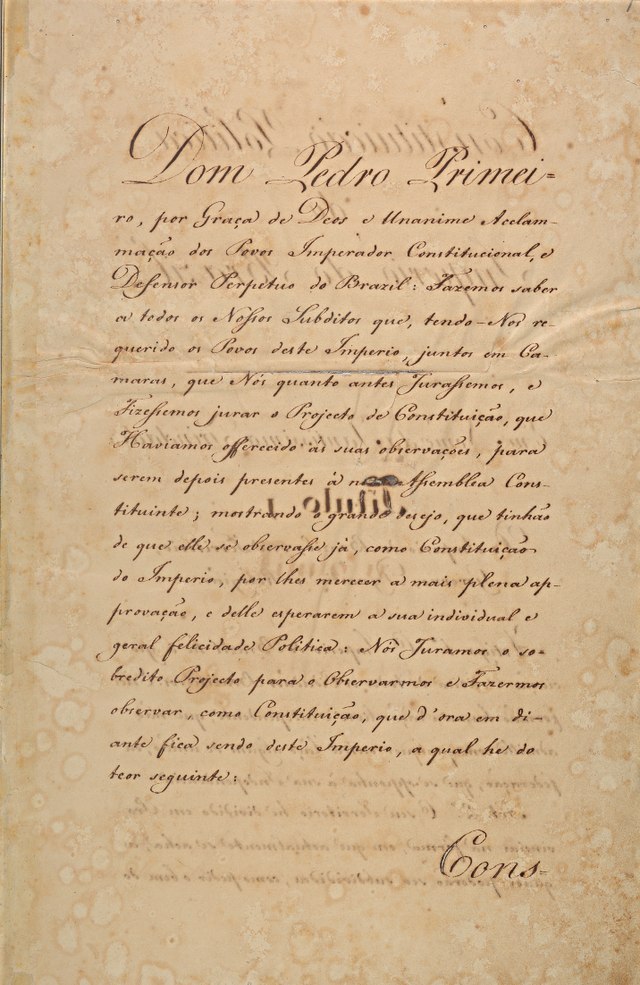 Dom Pedro Primei=
ro, por Graça de Deos e Unanime Aclam-
mação dos Povos Imperador Constitucional, e
Defensor Perpetuo do Brazil: Fazemos saber
a todos os Nossos Subditos que, tendo-Nos re-
querido os Povos deste Imperio, juntos em Ca-
maras, que Nós quanto antes Jurassemos, e
Fizessemos jurar o Projecto de Constituição, que
Haviamos offerecido ás suas observações, para
serem depois presentes á nova Assemblea Cons-
tituinte; mostrando o grande desejo, que tinhão
de que elle se observasse já, como Constituição
do Imperio, por lhes merecer a mais plena ap-
provação, e delle esperarem a sua individual e
geral felicidade Politica: Nós Juramos o so-
bredito Projecto para o Observarmos e Fazermos
observar, como Constituição, que d'ora em di-
ante fica sendo deste Imperio, a qual he do
teor seguinte:
Cons-